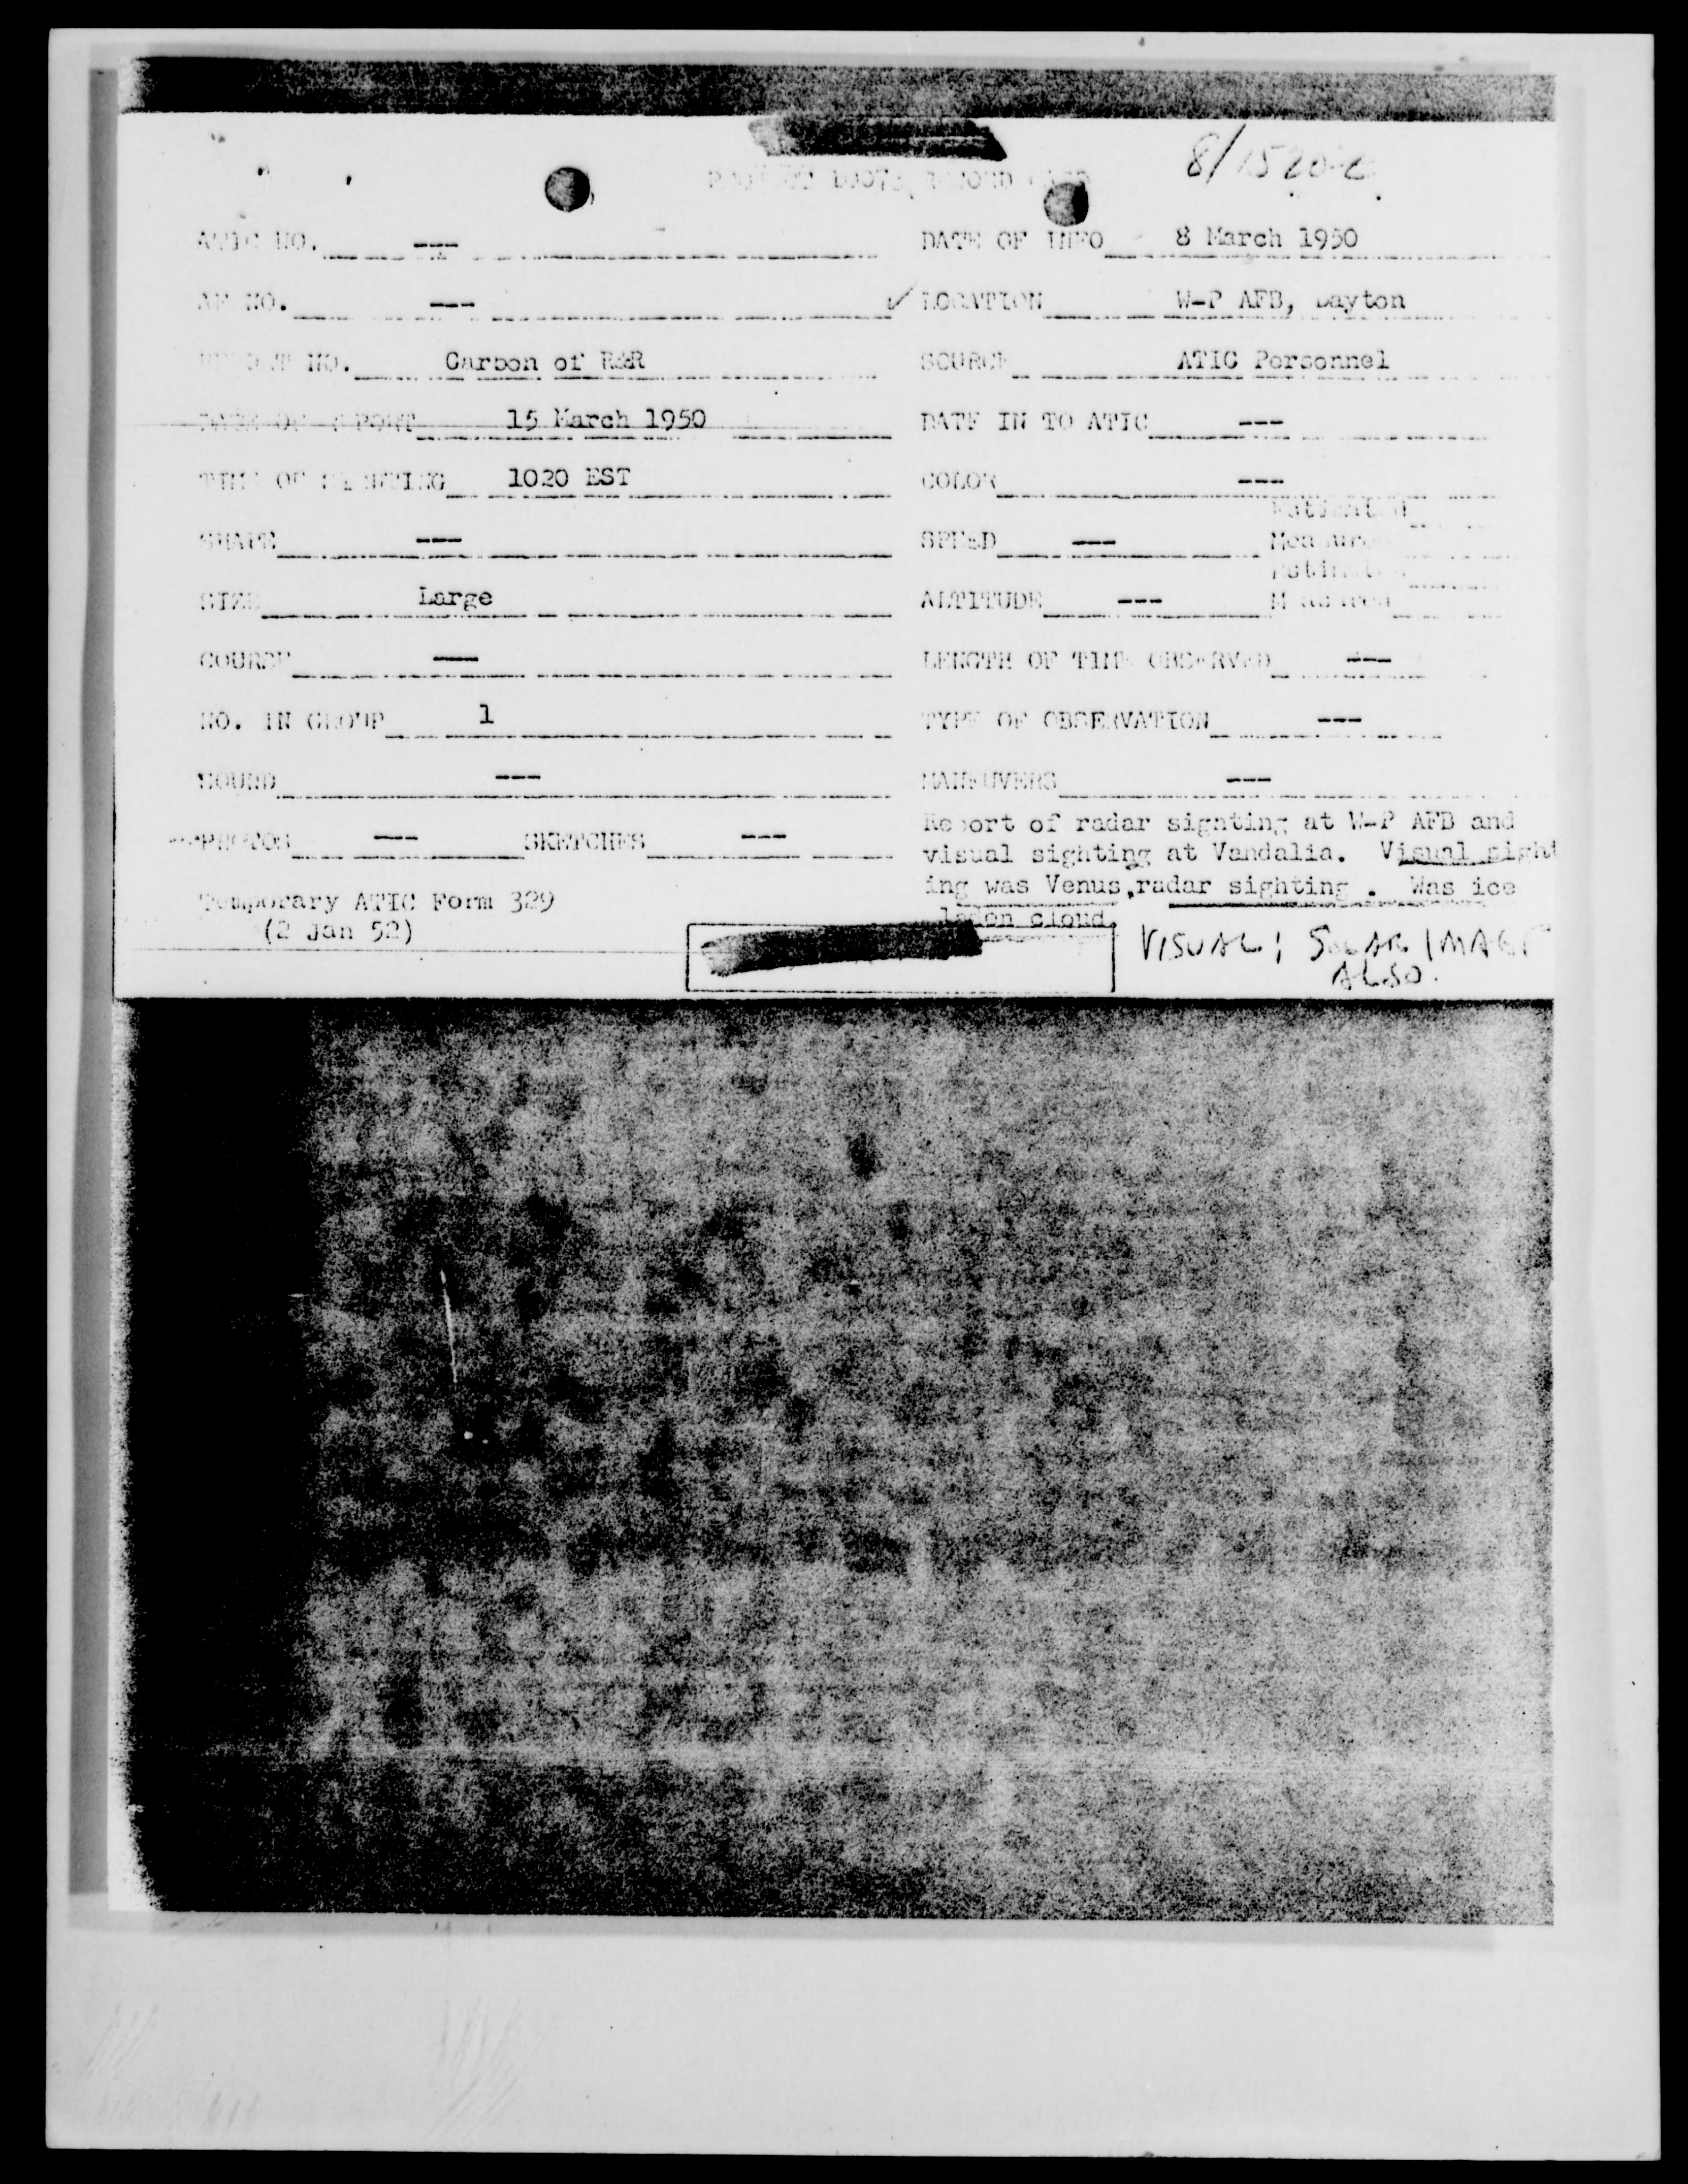 8/1520Z
PROJECT 10073 RECORD CARD
ATIC NO. ---
DATE OF INFO 8 March 1950
AF NO. ---
✓ LOCATION W-P AFB, Dayton
REPORT NO. Carbon of R&R
SOURCE ATIC Personnel
DATE OF REPORT 15 March 1950
DATE IN TO ATIC ---
TIME OF SIGHTING 1020 EST
COLOR ---
SHAPE ---
SPEED --- Estimated
Measured
SIZE Large
ALTITUDE --- Estimated
Measured
COURSE ---
LENGTH OF TIME OBSERVED ---
NO. IN GROUP 1
TYPE OF OBSERVATION ---
SOUND ---
MANEUVERS ---
PHOTOS --- SKETCHES ---
Report of radar sighting at W-P AFB and
visual sighting at Vandalia. Visual sight
ing was Venus, radar sighting . Was ice
laden cloud.
Temporary ATIC Form 329
(2 Jan 52)
VISUAL; SOLAR IMAGE
ALSO.